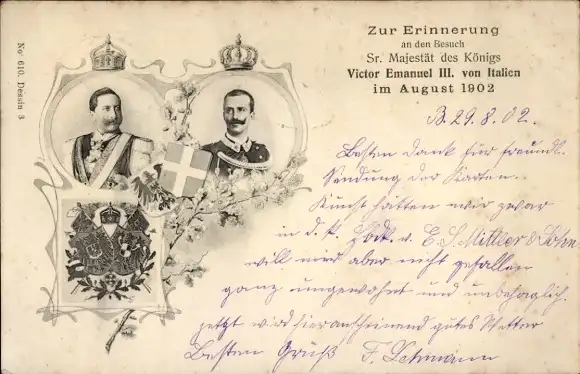 No 610. Dessin 3
Zur Erinnerung
an den Besuch
Sr. Majestät des Königs
Victor Emanuel III. von Italien
im August 1902
B. 29. 8. 02.
Besten Dank für freundl.
Sendung der Karten.
hätten wir zwar
in d. v. E. S. Mittler & Sohn
will mir aber nicht gefallen
ganz ungewohnt und unbehaglich.
jetzt wird hier anscheinend gutes Wetter
Besten Gruß F. Lehmann